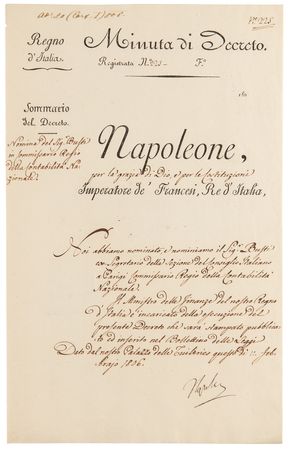 N.° 225.
Regno
d'Italia.
Minuta di Decreto.
Registrata N. 225 F.°
180
Sommario
del Decreto.
Nomina del Sig.
in Commissario Regio
della Contabilità Na-
zionale.
Napoleone,
per la grazia di Dio, e per le Costituzioni
Imperatore de' Francesi, Re d'Italia,
Noi abbiamo nominato, e nominiamo il Sig.
Segretario della Sezione del Consiglio Italiano
a Parigi Commissario Regio della Contabilità
Nazionale.
Il Ministro delle Finanze del nostro Regno
d'Italia è incaricato della esecuzione del
presente Decreto che sarà stampato, pubblica-
to ed inserito nel Bollettino delle Leggi
Dato dal nostro Palazzo delle Tuileries questo dì Feb-
brajo 1806.